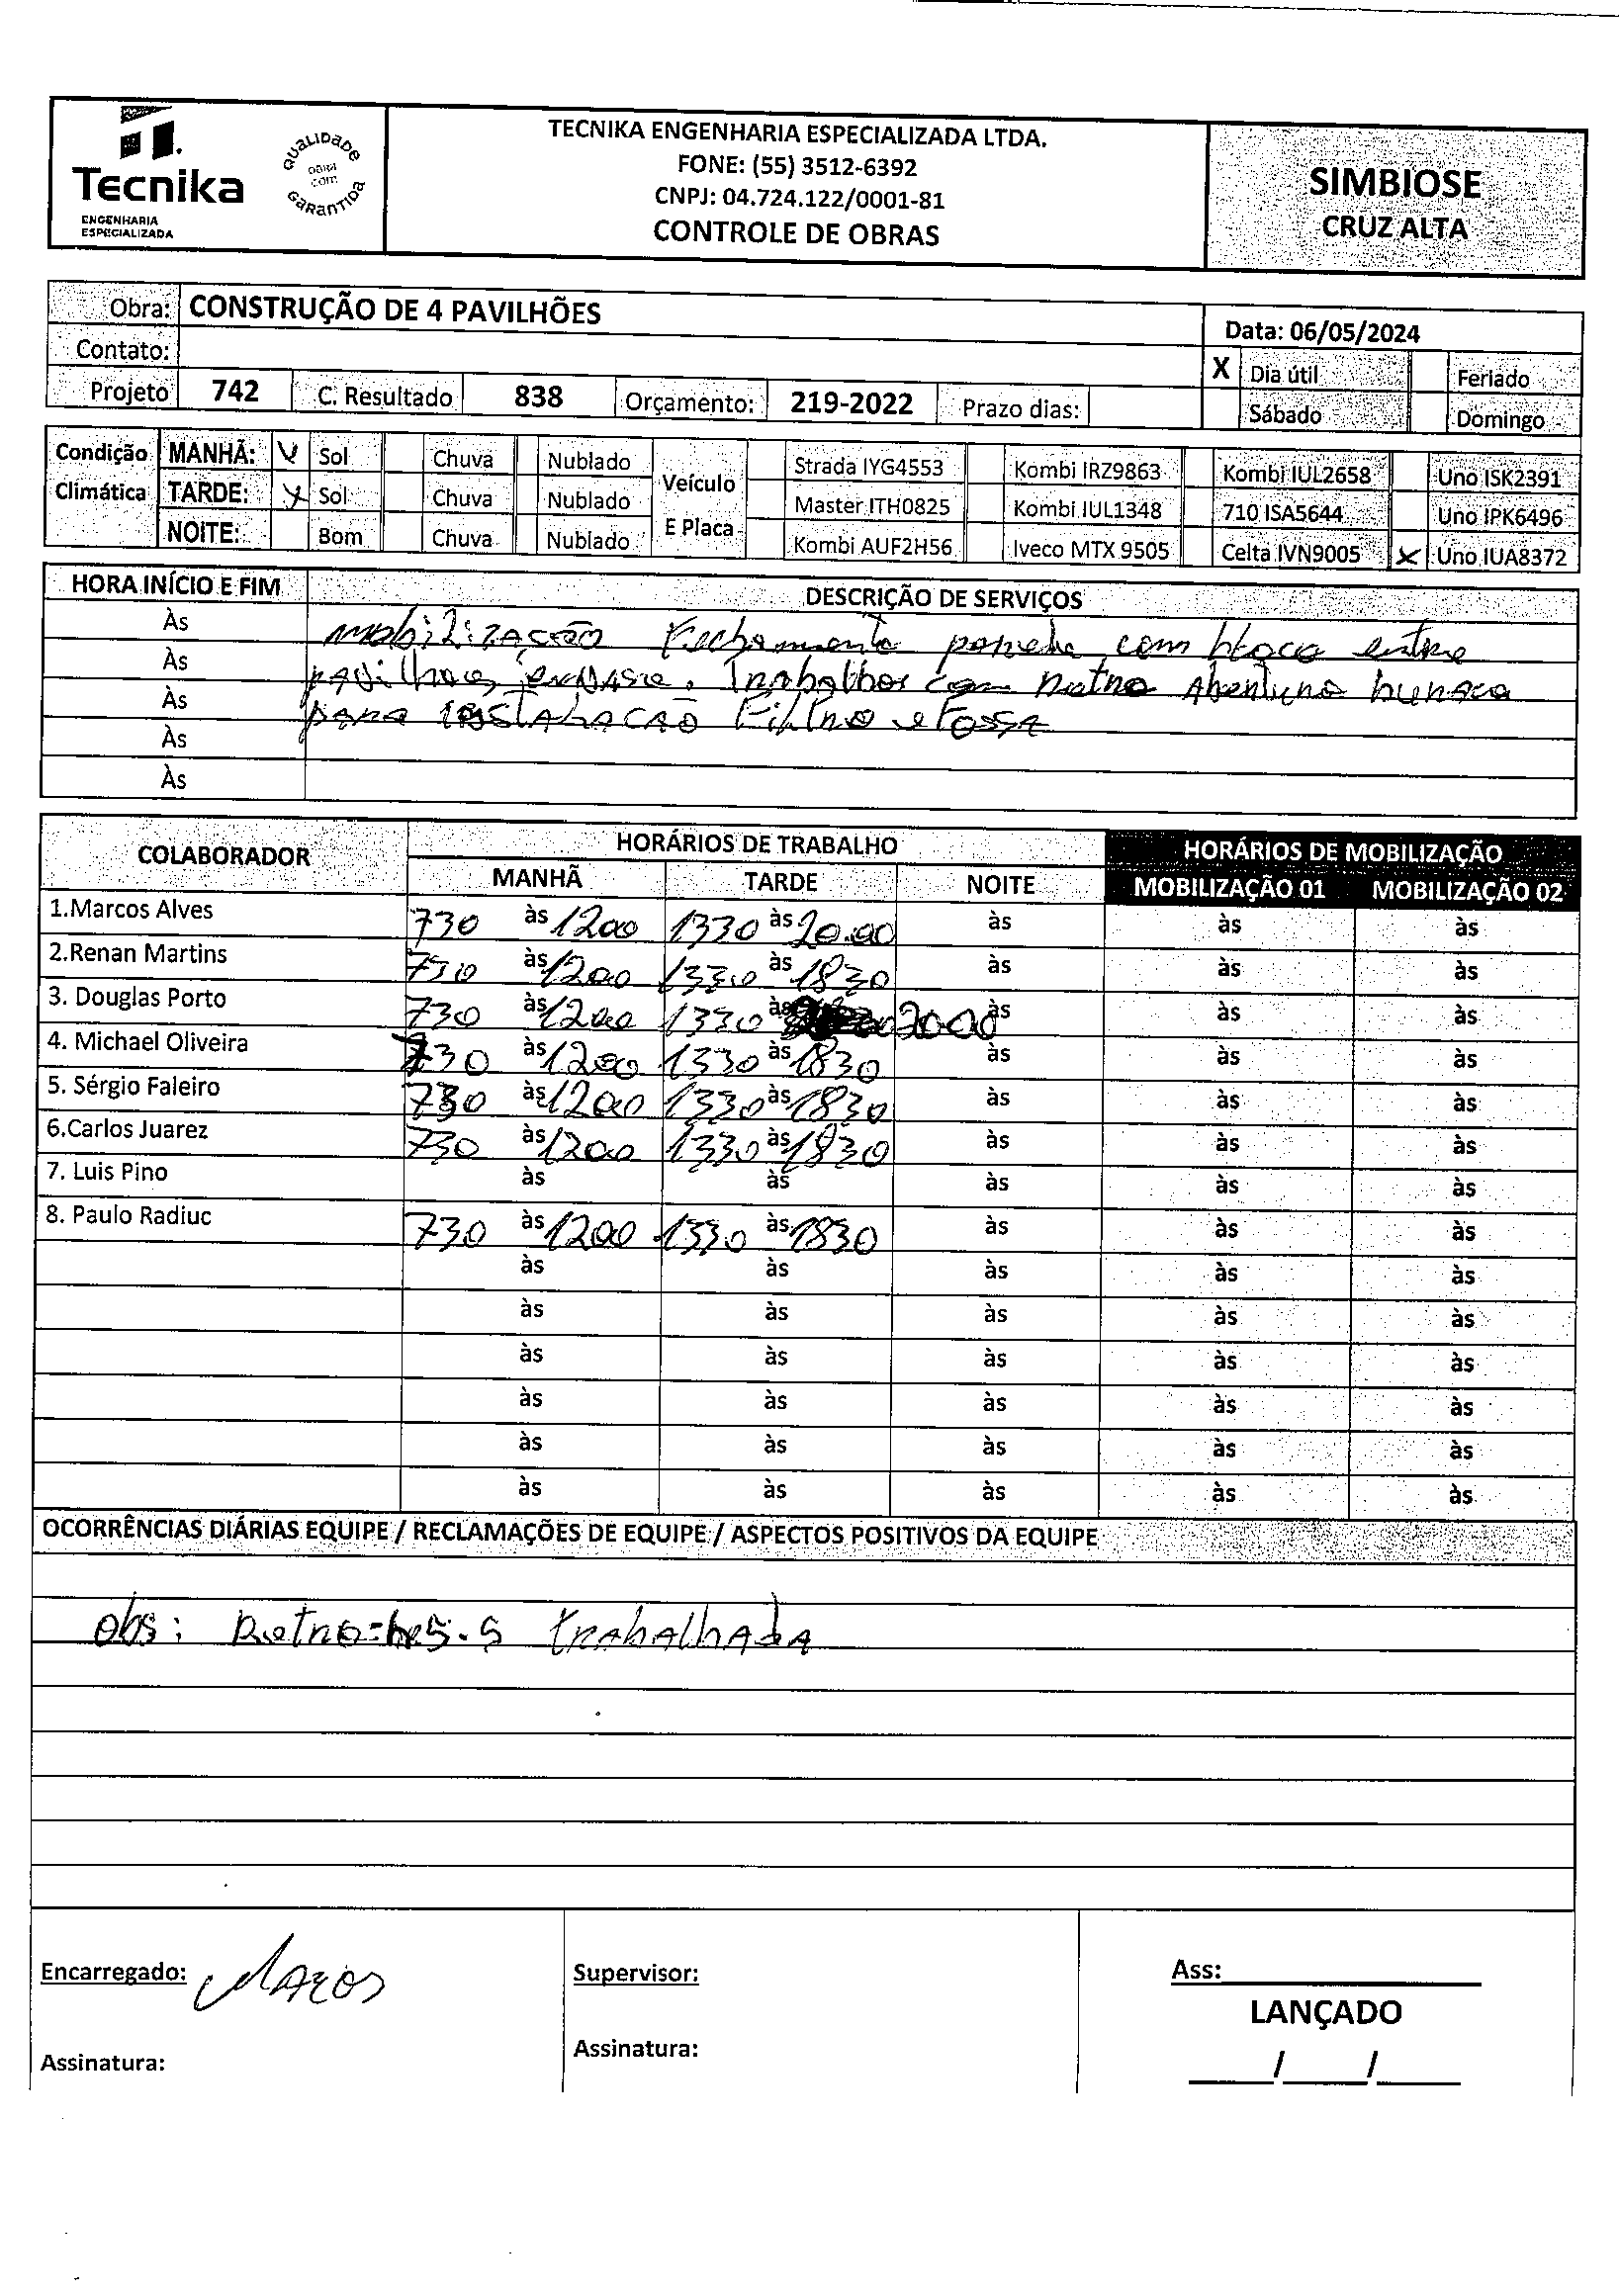 Tecnika
ENGENHARIA
ESPECIALIZADA
QUALIDADE
obra
com
GARANTIDA
TECNIKA ENGENHARIA ESPECIALIZADA LTDA.
FONE: (55) 3512-6392
CNPJ: 04.724.122/0001-81
CONTROLE DE OBRAS
SIMBIOSE
CRUZ ALTA
Obra: CONSTRUÇÃO DE 4 PAVILHÕES
Data: 06/05/2024
Contato:
X Dia útil Feriado
Projeto 742 C. Resultado 838 Orçamento: 219-2022 Prazo dias:
Sábado Domingo
Condição Climática
MANHÃ: X Sol Chuva Nublado
TARDE: X Sol Chuva Nublado
NOITE: Bom Chuva Nublado
Veículo E Placa
Strada IYG4553 Kombi IRZ9863 Kombi IUL2658 Uno ISK2391
Master ITH0825 Kombi IUL1348 710 ISA5644 Uno IPK6496
Kombi AUF2H56 Iveco MTX 9505 Celta IVN9005 X Uno IUA8372
HORA INÍCIO E FIM DESCRIÇÃO DE SERVIÇOS
Às mobilização Fechamento parede com bloco entre
Às pavilhões . Trabalhos com Retro Abertura buraco
Às para instalação Filtro e Fossa
Às
Às
COLABORADOR HORÁRIOS DE TRABALHO HORÁRIOS DE MOBILIZAÇÃO
MANHÃ TARDE NOITE MOBILIZAÇÃO 01 MOBILIZAÇÃO 02
1.Marcos Alves 730 às 1200 1330 às 20.00 às às às
2.Renan Martins 730 às 1200 1330 às 1830 às às às
3. Douglas Porto 730 às 1200 1330 às 2000 às às às
4. Michael Oliveira 730 às 1200 1330 às 1830 às às às
5. Sérgio Faleiro 730 às 1200 1330 às 1830 às às às
6.Carlos Juarez 730 às 1200 1330 às 1830 às às às
7. Luis Pino às às às às às
8. Paulo Radiuc 730 às 1200 1330 às 1830 às às às
às às às às às
às às às às às
às às às às às
às às às às às
às às às às às
às às às às às
OCORRÊNCIAS DIÁRIAS EQUIPE / RECLAMAÇÕES DE EQUIPE / ASPECTOS POSITIVOS DA EQUIPE
obs: Retro = trabalhada
Encarregado: Marcos
Supervisor:
Ass:
LANÇADO
Assinatura:
Assinatura:
___/___/___